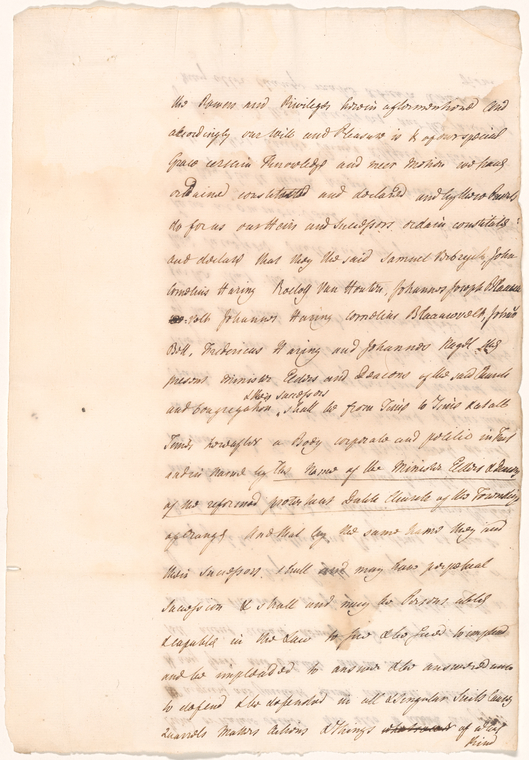 the Powers and Privileges herein aforementioned And
accordingly our Will and Pleasure is & of our special
Grace certain Knowledge and meer Motion we have
ordained constituted and declared and by these Presents
do for us our Heirs and Successors ordain constitute
and declare that they the said Samuel Verbryck, Johan
Cornelius Haring Roelof Van Houten, Johannes Joseph Blauvelt
Johannes Haring Cornelius Blaauwvelt, John
Bell, Fredericus Haring and Johannes Nagel, the
present Minister Elders and Deacons of the said Church
& their Successors
and Congregation, shall be from Time to Time & at all
Times hereafter a Body corporate and politic in Fact
and in Name by The Name of the Minister Elders & Deacons
of the reformed protestant Dutch Church of the Township
of Orange And that by the same name they and
their Successors, shall and may have perpetual
Succession & shall and may be Persons able
& capable in the Law to sue & be sued to implead
and be impleaded to answer & be answered unto
to defend & be defended in all & Singular Suits Causes
Quarrels Matters Actions & Things of what
Kind